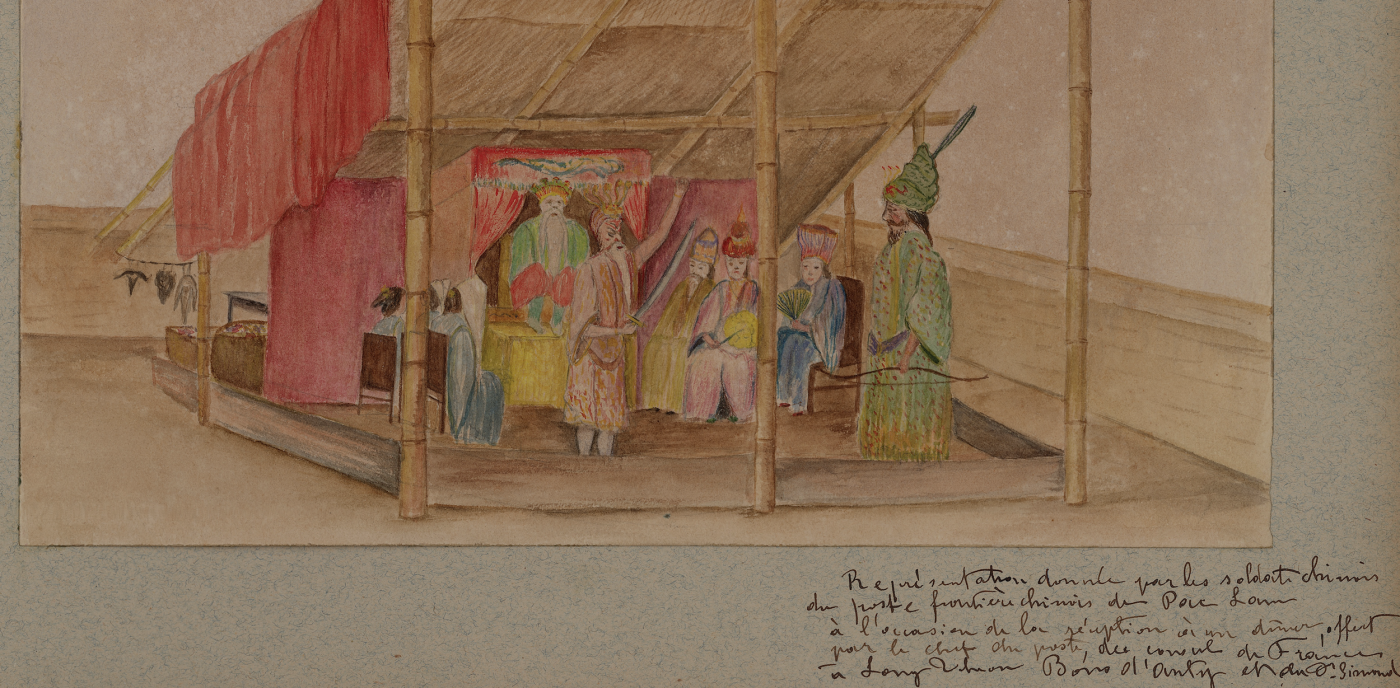 Représentation donnée par les soldats chinois
du poste frontière chinois de Pac Lam
à l'occasion de la réception à un dîner, offert
par le chef du poste, des consul de France
à Long Tcheou Bons d'Anty et du Dr Simond